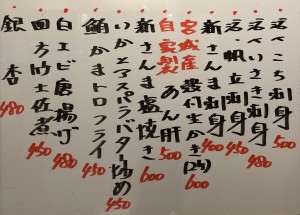 活へこち刺身 500
活へいさき刺身 480
活帆立刺身 450
宮城産殻付生かき(2ケ) 600
自家製あん肝 500
新さんま刺身 400
新さんま塩焼き 600
いかとアスパラバター炒め 450
鮪かまトロフライ 450
白エビ唐揚げ 480
田舎竹土佐煮 450
銀杏 480